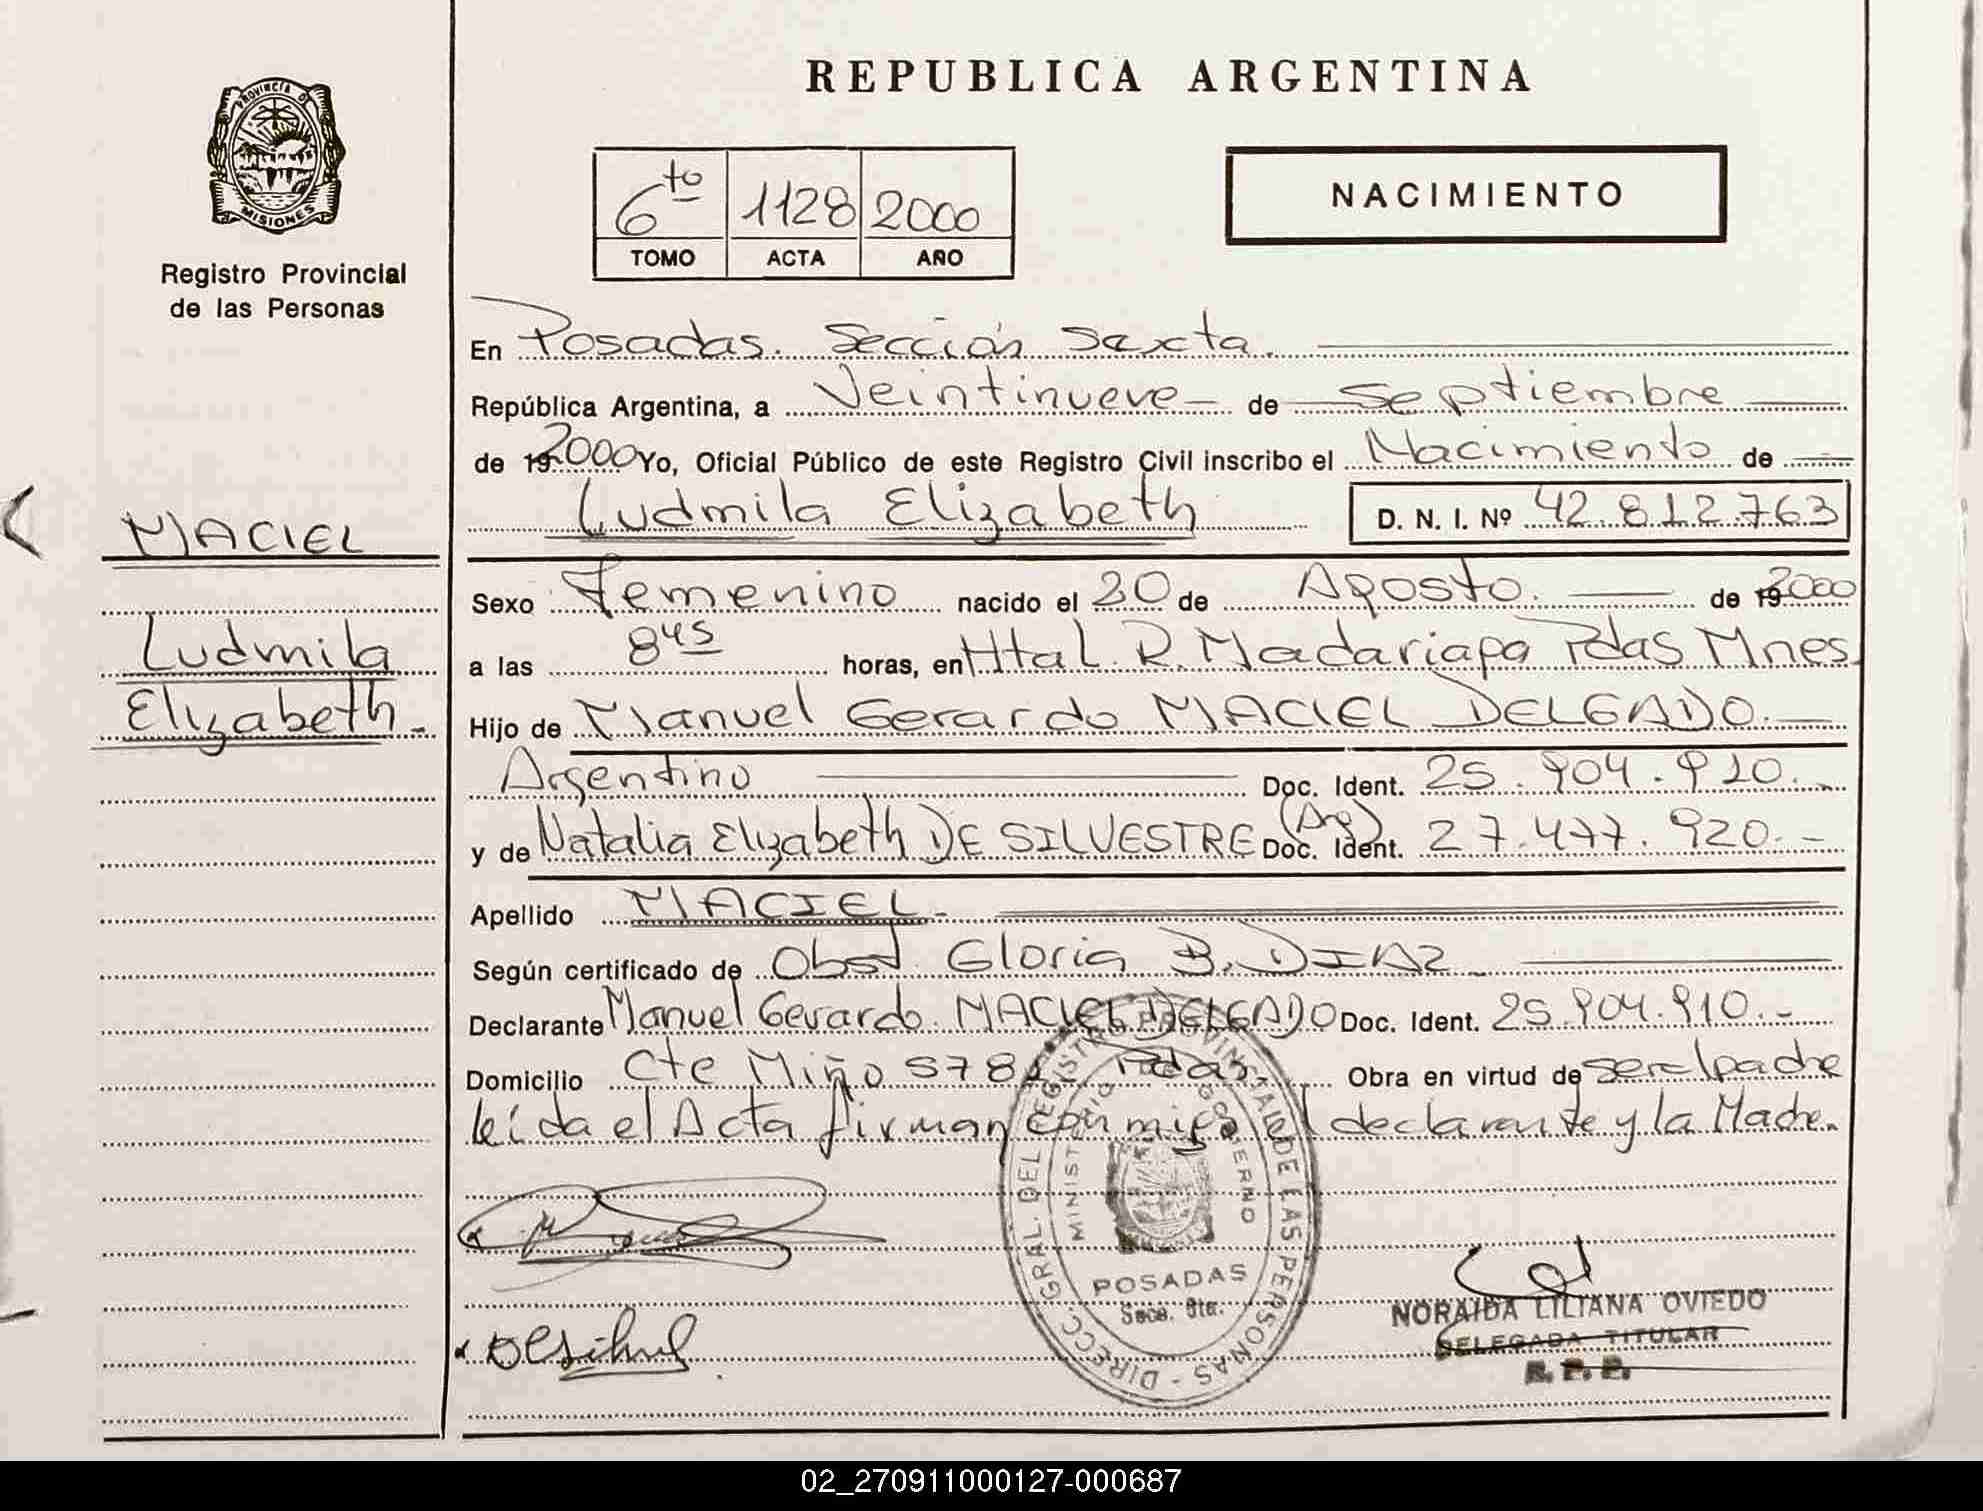 PROVINCIA DE
MISIONES
Registro Provincial
de las Personas
MACIEL
Ludmila
Elizabeth.-
REPUBLICA ARGENTINA
6to 1128 2000
TOMO ACTA AÑO
NACIMIENTO
En Posadas. Sección Sexta.
República Argentina, a Veintinueve de Septiembre
de 19 2000 Yo, Oficial Público de este Registro Civil inscribo el Nacimiento de
Ludmila Elizabeth D. N. I. Nº 42.812.763
Sexo Femenino nacido el 20 de Agosto. de 19 2000
a las 8 45 horas, en Htal. R. Madariaga Pdas Mnes.
Hijo de Manuel Gerardo MACIEL DELGADO.
Argentino Doc. Ident. 25.904.910.-
y de Natalia Elizabeth DE SILVESTRE (Arg) Doc. Ident. 27.477.920.-
Apellido MACIEL.
Según certificado de Obst. Gloria B. DIAZ
Declarante Manuel Gerardo MACIEL DELGADO Doc. Ident. 25.904.910.-
Domicilio Cte Miño 578 Pdas. Obra en virtud de ser el padre
leída el Acta firman conmigo el declarante y la Madre.
DIRECC. GRAL. DEL REGISTRO PROVINCIAL DE LAS PERSONAS -
MINISTERIO GOBIERNO
POSADAS
Secc. 6ta.
NORAIDA LILIANA OVIEDO
DELEGADA TITULAR
R. P. P.
02_270911000127-000687